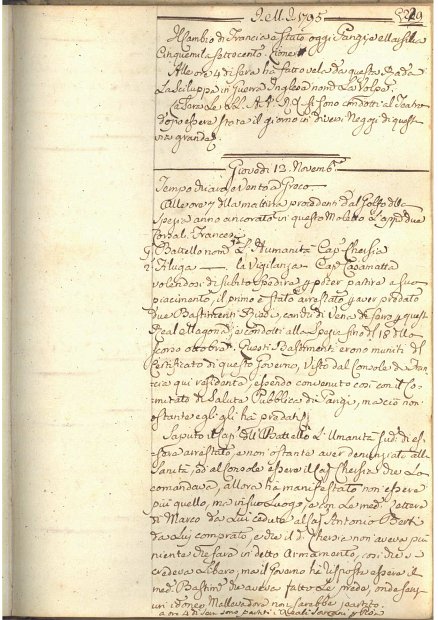 1795
229
Il Cambio di Francia è stato oggi Parigi e Marsilia
Cinquemila Settecento
Alle ore 4 di sera ha fatto vela da questa Rada
la Sciluppa in Guerra Inglese nom.ta La Volpe.
si sono condotti al Teatro
dopo essere state il giorno in diversi Negozi di quest
via grande.
Giovedì 12 Novemb.
Tempo Vento a Greco
Alle ore 7 della mattina procedenti dal Golfo della
Spezia anno ancorato in questo Moletto i due
Corsal. Francesi
Battello nom. L'Humanità Cap. Chersia
Filuga la Vigilanza Cap. Casamatta
volendosi di subito spedire p. poter partire a suo
piacimento, il primo è stato arrestato p. aver predato
due Bastimenti
Real e condotti alla Spezia fino dal 18 della
scorso ottobre. Questi Bastimenti erono muniti di
Certificato di questo Governo, Visto dal Console di Fran
cia qui residente, essendo convenuto così con il Co
mitato di Salute Pubblica di Parigi, ma ciò non
ostante egli gli ha predati.
Saputo il Cap. dell Battello L'Umanità sud. di es
sere arrestato, e non ostante aver denunziato alla
Sanità, ed al Console essere il Cap. Chersia che lo
comandava, allora ha manifestato non essere
più quello, ma in suo luogo, e con le med. lettere
di Marco da Lui cedute al Cap. Antonio Berti
da Lui comprato, e che il d. Chersia non aveva più
niente che fare in detto Armamento, così che si
credeva Libero, ma il Governo ha disposto essere il
med. Bastim. che aveva fatto le prede, onde senz
un idoneo Mallevadore non sarebbe partito.